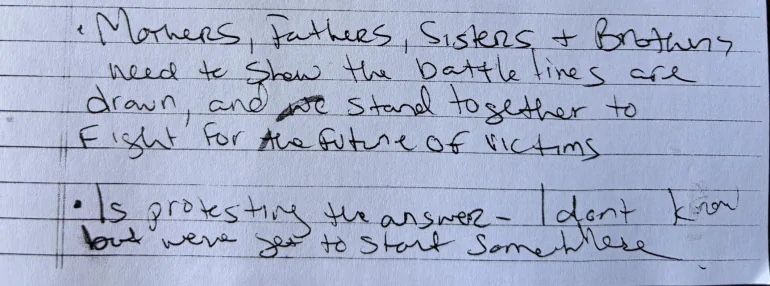 • Mothers, Fathers, Sisters + Brothers
need to show the battle lines are
drawn, and we stand together to
Fight for the future of victims
• Is protesting the answer - I dont know
but were get to start somewhere